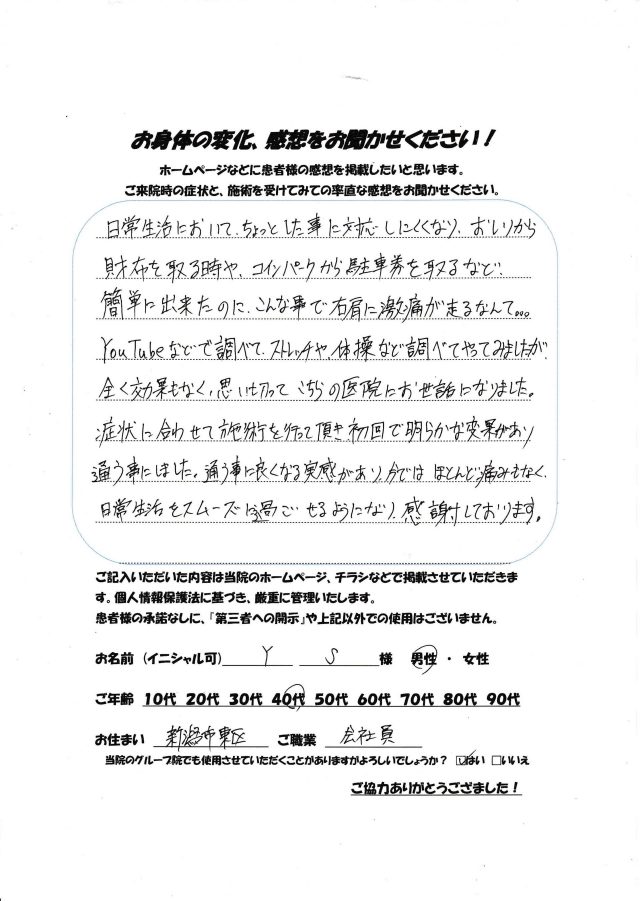 お身体の変化、感想をお聞かせください！
ホームページなどに患者様の感想を掲載したいと思います。
ご来院時の症状と、施術を受けてみての率直な感想をお聞かせください。
日常生活において、ちょっとした事に対応しにくくなり、おしりから
財布を取る時や、コインパークから駐車券を取るなど、
簡単に出来たのに、こんな事で右肩に激痛が走るなんて。。。
YouTubeなどで調べて、ストレッチや、体操など調べてやってみましたが、
全く効果もなく、思い切ってこちらの医院にお世話になりました。
症状に合わせて施術を行って頂き初回で明らかな変果があり
通う事にしました。通う事に良くなる実感があり、今では ほとんど痛みもなく、
日常生活をスムーズに過ごせるようになり、感謝しております。
ご記入いただいた内容は当院のホームページ、チラシなどで掲載させていただきま
す。個人情報保護法に基づき、厳重に管理いたします。
患者様の承諾なしに、「第三者への開示」や上記以外での使用はございません。
お名前（イニシャル可） Y S 様 男性 ・ 女性
ご年齢 10代 20代 30代 40代 50代 60代 70代 80代 90代
お住まい 新潟市東区 ご職業 会社員
当院のグループ院でも使用させていただくことがありますがよろしいでしょうか？ ☑はい □いいえ
ご協力ありがとうござました！